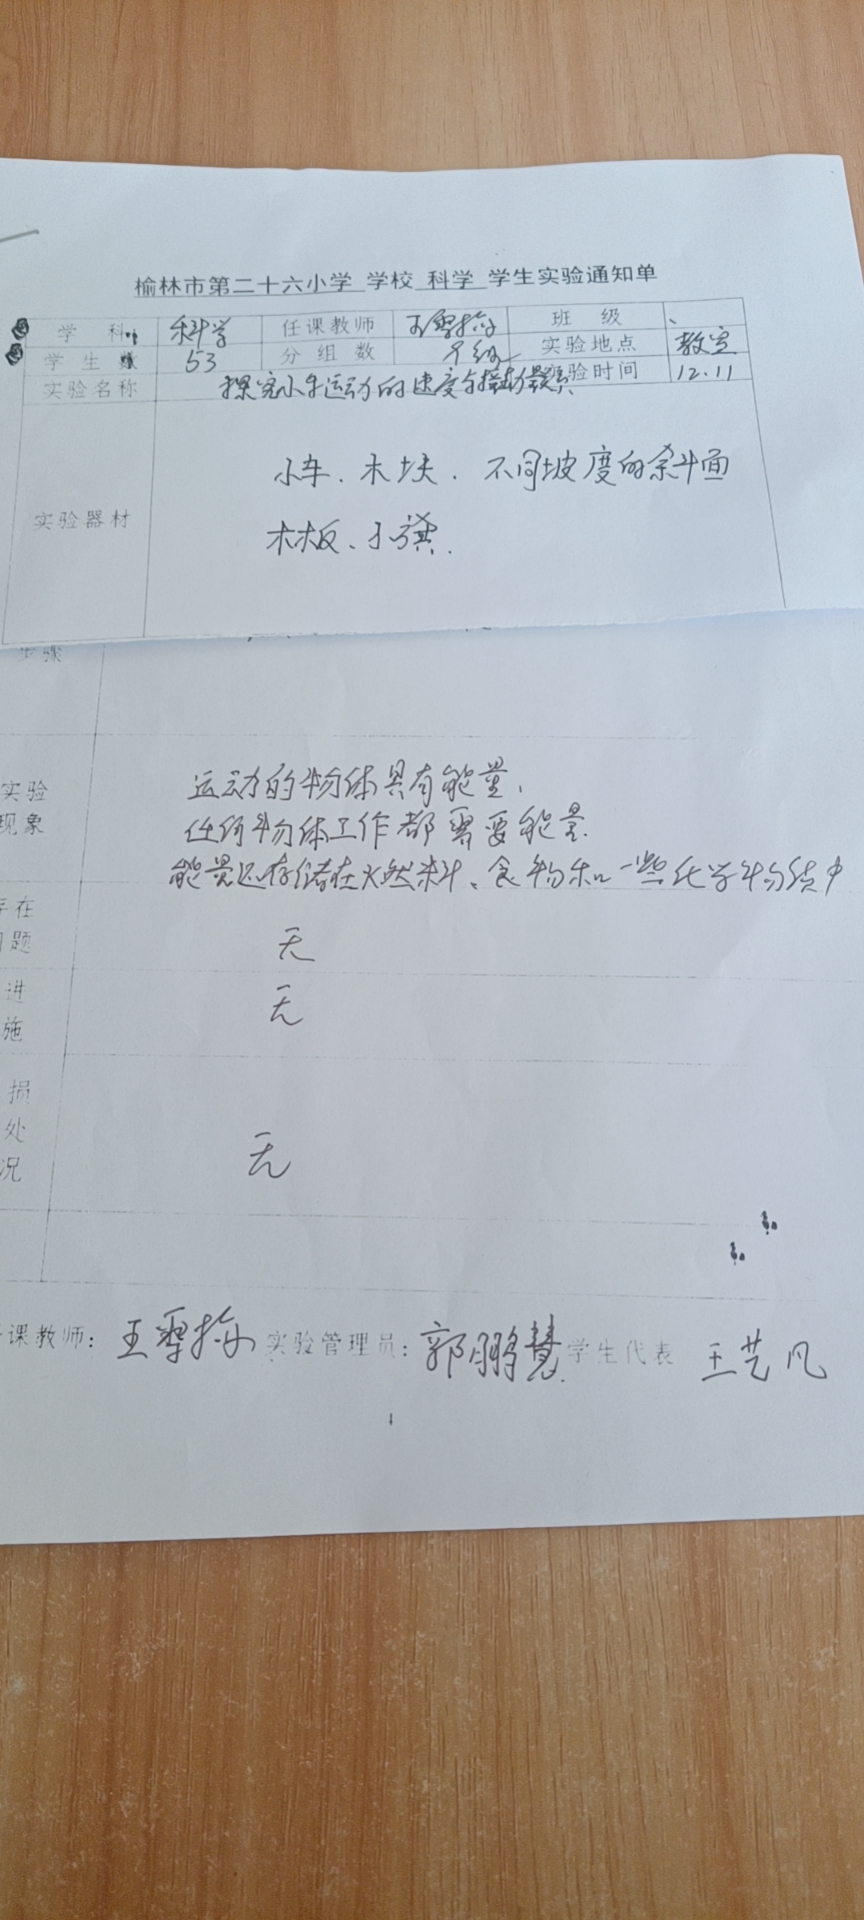 榆林市第二十六小学 学校 科学 学生实验通知单
学 科 科学 任课教师 王雪梅 班 级
学 生 数 53 分 组 数 实验地点 教室
实验名称 探究小车运动的速度与 实验时间 12.11
小车、木块、不同坡度的斜面
实验器材
木板、小旗.
步骤
实验 运动的物体具有能量,
现象 任何物体工作都需要能量.
能量还存储在燃料、食物和一些化学物质中
存在
问题 无
进 无
施
损
处 无
况
课教师: 王雪梅 实验管理员: 郭鹏慧 学生代表 王艺凡